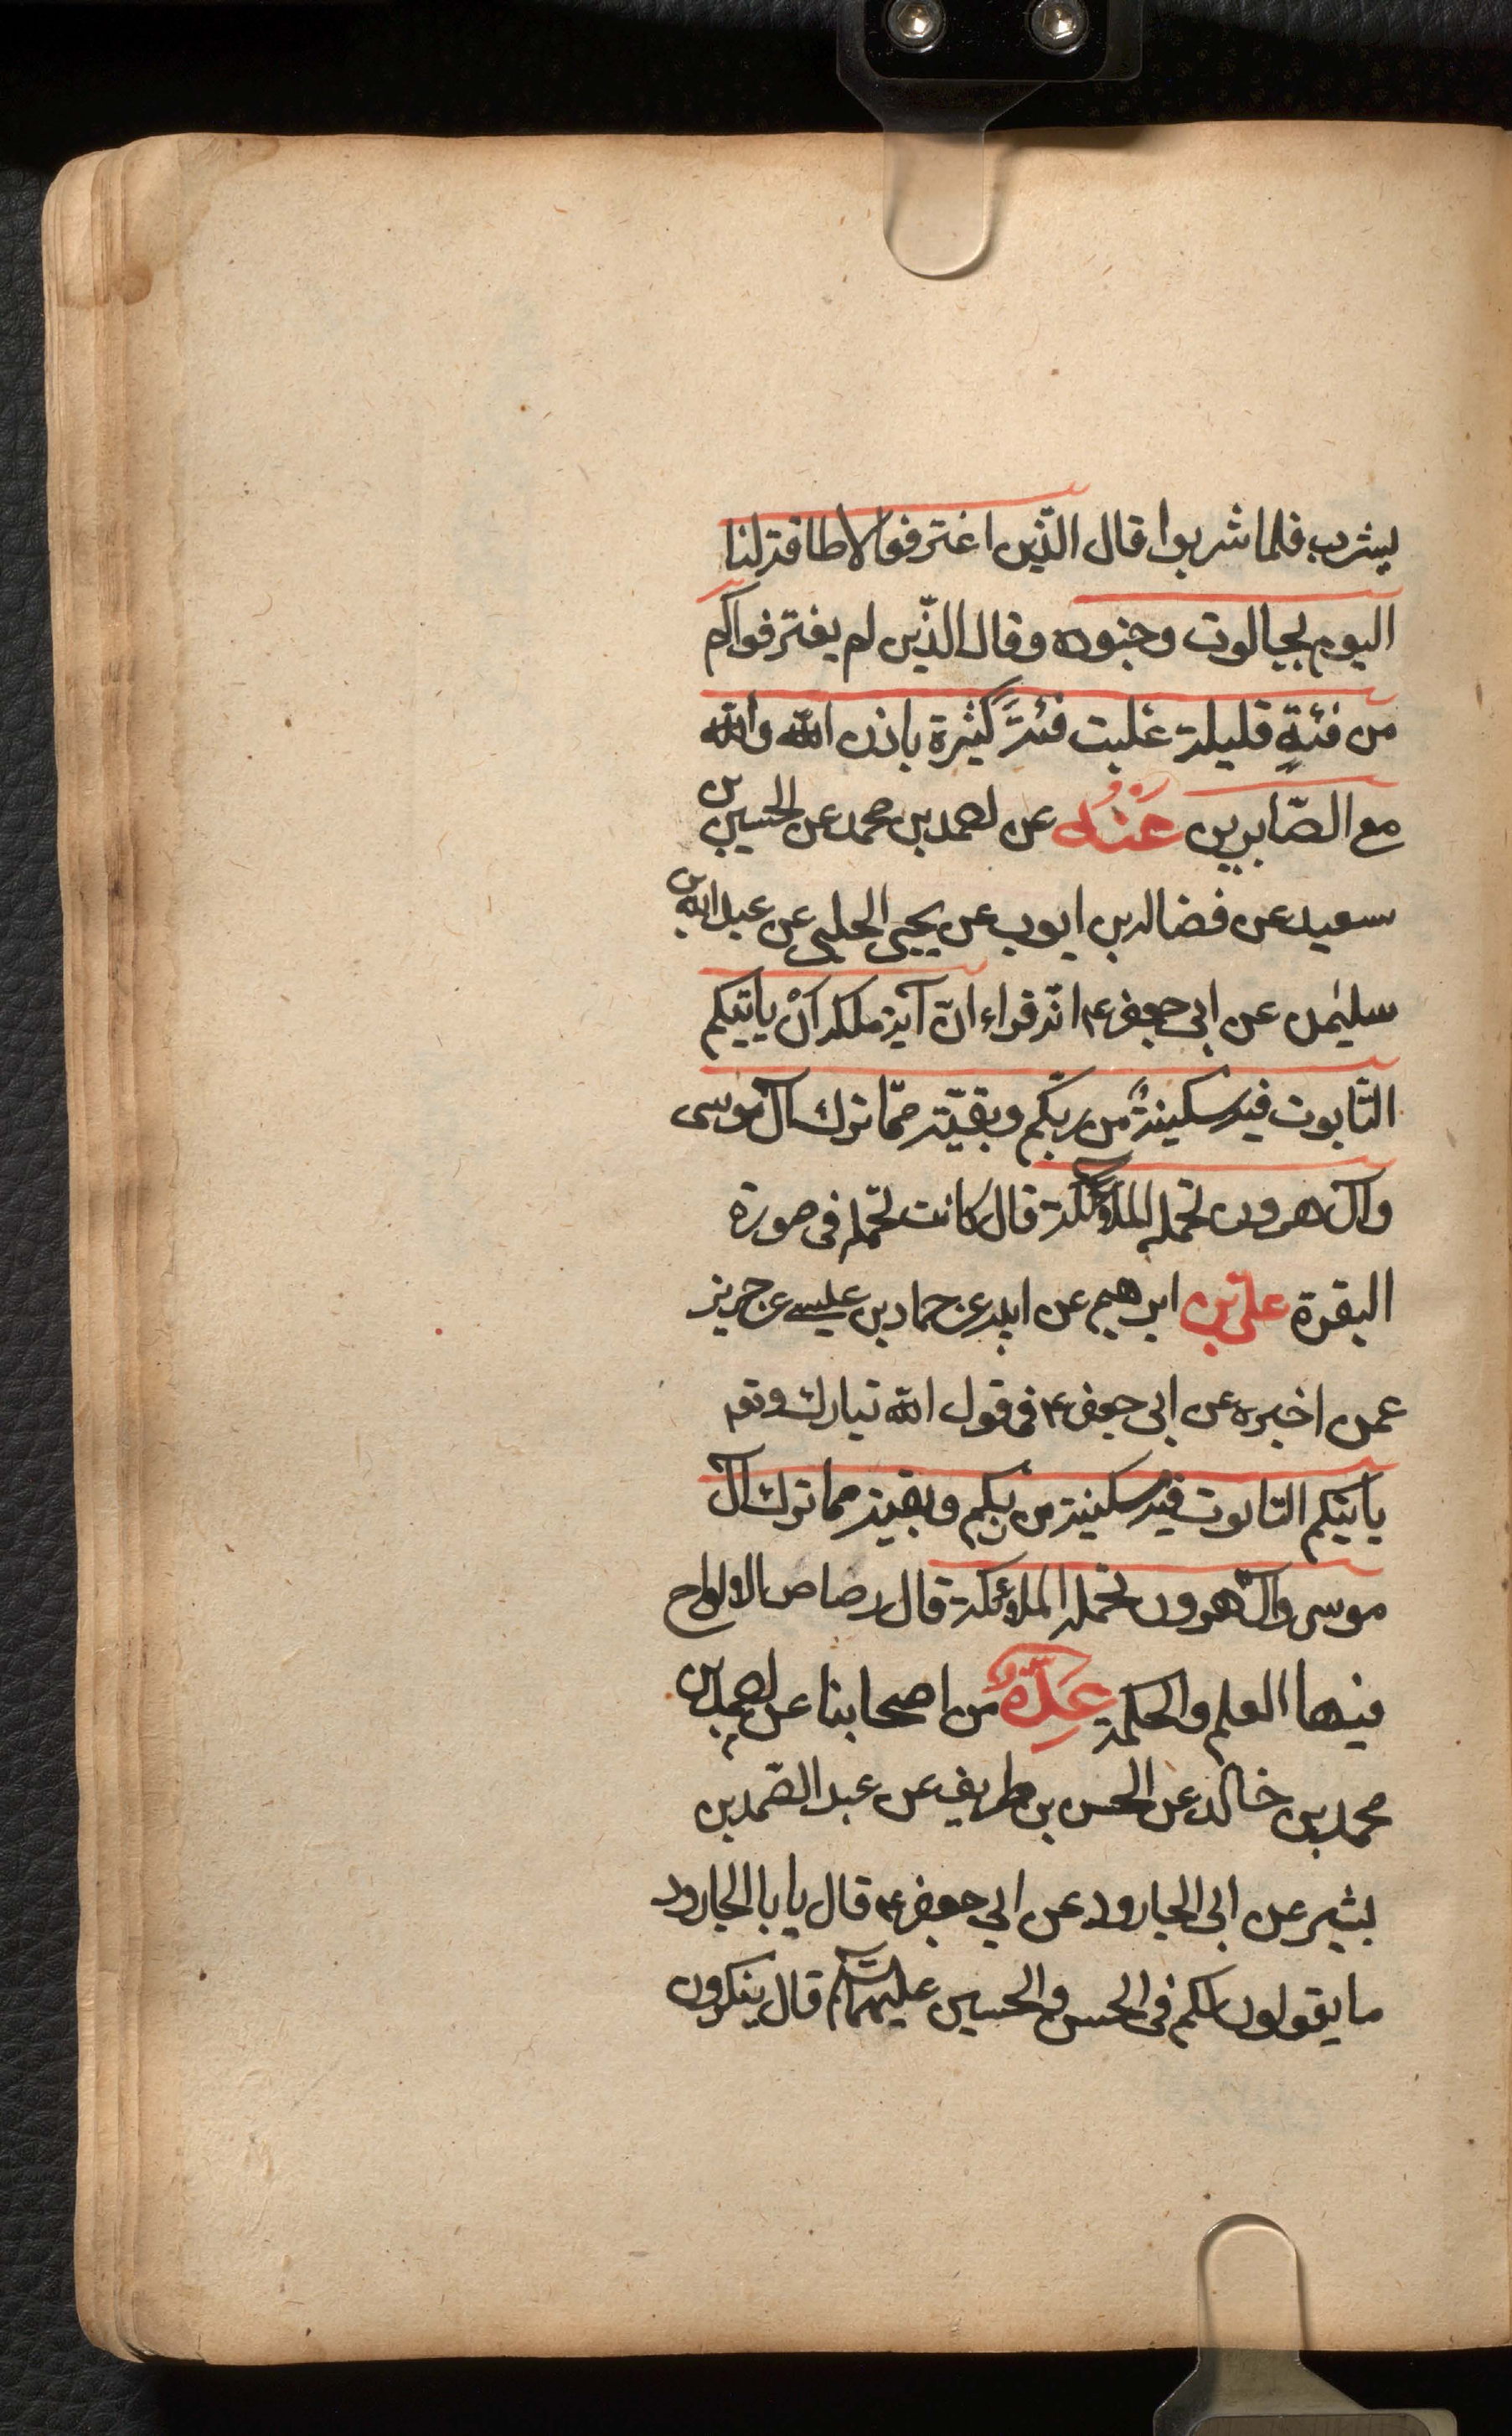 يشرب فلما شربوا قال الذّين اغترفوا لا طاقة لنا
اليوم بجالوت وجنوده وقال الذّين لم يغترفوا كم
من فئةٍ قليلة غلبت فئةً كثيرة باذن الله والله
مع الصّابرين عَنْهُ عن احمد بن محمد عن الحسين بن
سعيد عن فضالة بن ايوب عن يحيى الحلبى عن عبد الله بن
سليمٰن عن ابى جعفر ع انّه قراء انّ آية ملكه أنْ ياتيكم
التّابوت فيه سكينةٌ من ربّكم وبقيّة ممّا ترك آل موسى
وآل هرون تحمله الملائكة قال كانت تحمله فى صورة
البقرة علىّ بن ابرهيم عن ابيه عن حماد بن عيسى عن حريز
عمن اخبره عن ابى جعفر ع فى قول الله تبارك وتع
ياتيكم التابوت فيه سكينة من ربكم وبقية مما ترك آل
موسى وآل هرون تحمله الملائكة قال رضاض الالواح
فيها العلم والحكمة عِدّةٌ من اصحابنا عن احمد بن
محمد بن خالد عن الحسن بن ظريف عن عبد الصّمد بن
بشير عن ابى الجارود عن ابي جعفر ع قال يا با الجارود
ما يقولون لكم فى الحسن والحسين عليهما السّلام قال ينكرون